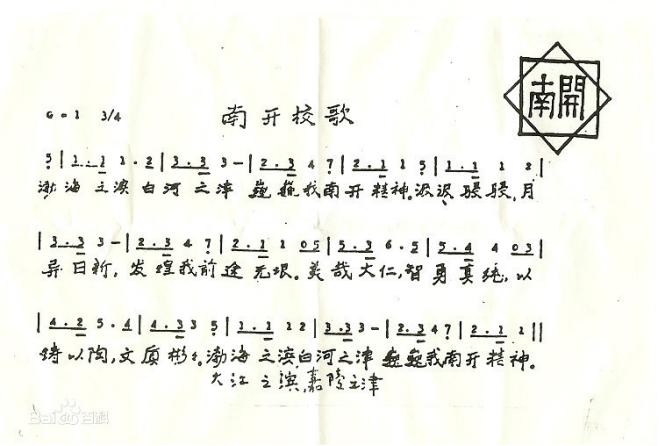 南开校歌
南開
G=1 3/4
5|1·1 1·2|3·3 3-|2·3 4 7|2·1 1 5|1·1 1 2|
渤海之滨白河之津 巍巍我南开精神。汲汲骎骎,月
|3·3 3-|2·3 4 7|2·1 1 05|5·3 6·5|5·4 4 03|
异日新,发煌我前途无垠。美哉大仁,智勇真纯,以
|4·2 5·4|4·3 3 5|1·1 1 2|3·3 3-|2·3 4 7|2·1 1||
铸以陶,文质彬彬。渤海之滨,白河之津 巍巍我南开精神。
大江之滨,嘉陵之津
Baidu百科